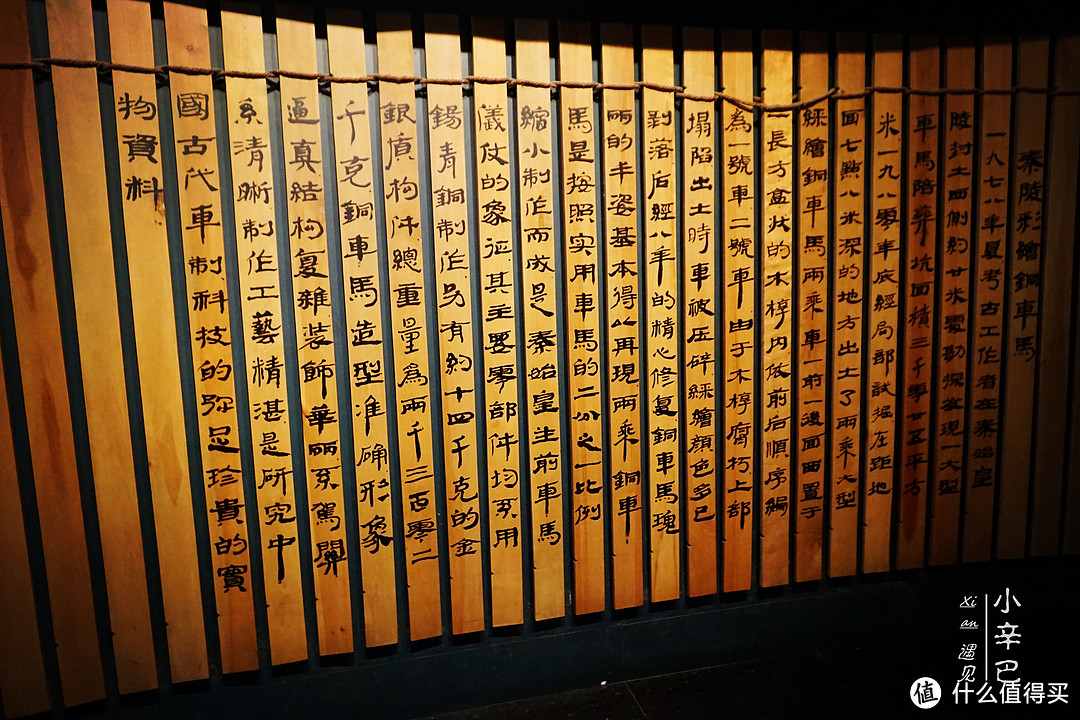 秦陵彩繪銅車馬
一九七八年夏考古工作者在秦始皇
陵封土西側約廿米處勘探發現一大型
車馬陪葬坑面積三千零廿五平方
米一九八零年底經局部試掘在距地
面七點八米深的地方出土了兩乘大型
綵繪銅車馬兩乘車一前一後面西置于
一長方盒狀的木椁内依前后順序編
為一號車二號車由于木椁腐朽上部
塌陷出土時車被压碎綵繪顔色多已
剥落后經八年的精心修复銅車馬瑰
丽的丰姿基本得以再現兩乘銅車
馬是按照实用車馬的二份之一比例
縮小制作而成是秦始皇生前車馬
儀仗的象征其主要零部件均系用
錫青銅制作另有約十四千克的金
銀質构件總重量爲兩千三百零二
千克銅車馬造型准确形象
逼真結构复雜装飾華丽系駕關
系清晰制作工藝精湛是研究中
國古代車制科技的弥足珍貴的實
物資料
小辛巴
Xi an 遇见
值 什么值得买